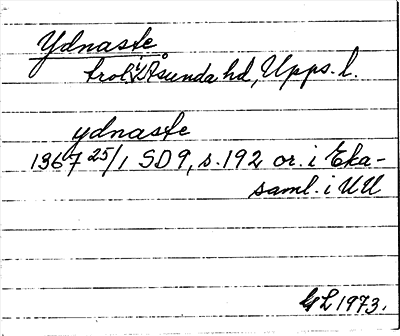 Ydnaste
trol. i Åsunda hd, Upps. l.
ydnaste
1367 25/1 SD9, s. 192 or. i Eka-
saml. i UU
GL 1973.